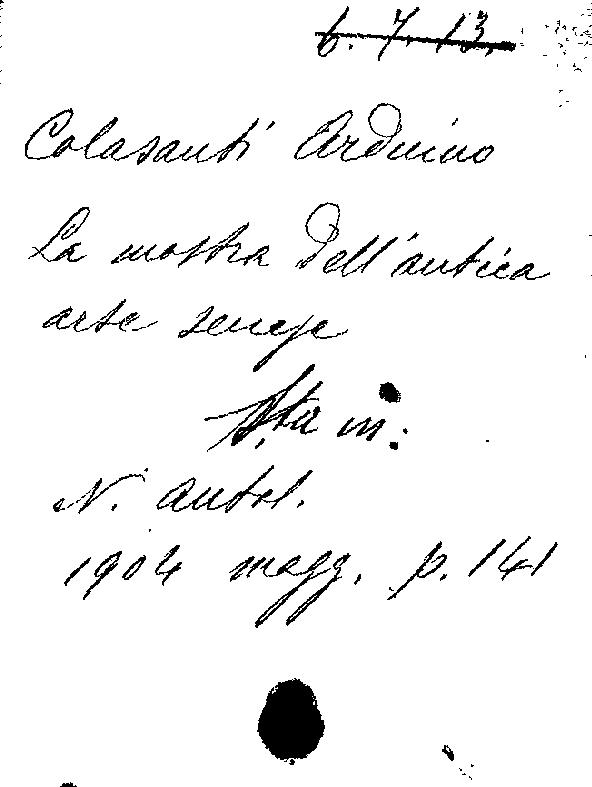 6. 7. 13.
Colasanti Arduino
La mostra dell'antica
arte senese
Sta in:
N. Antol.
1904 magg. p. 141